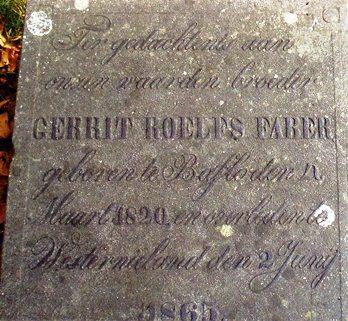 Ter gedachtenis aan
onzen waarden broeder
GERRIT ROELFS FABER,
geboren te Bafloden
Maart 1820, en overleden te
Westernieland den 2 Junij
1865.